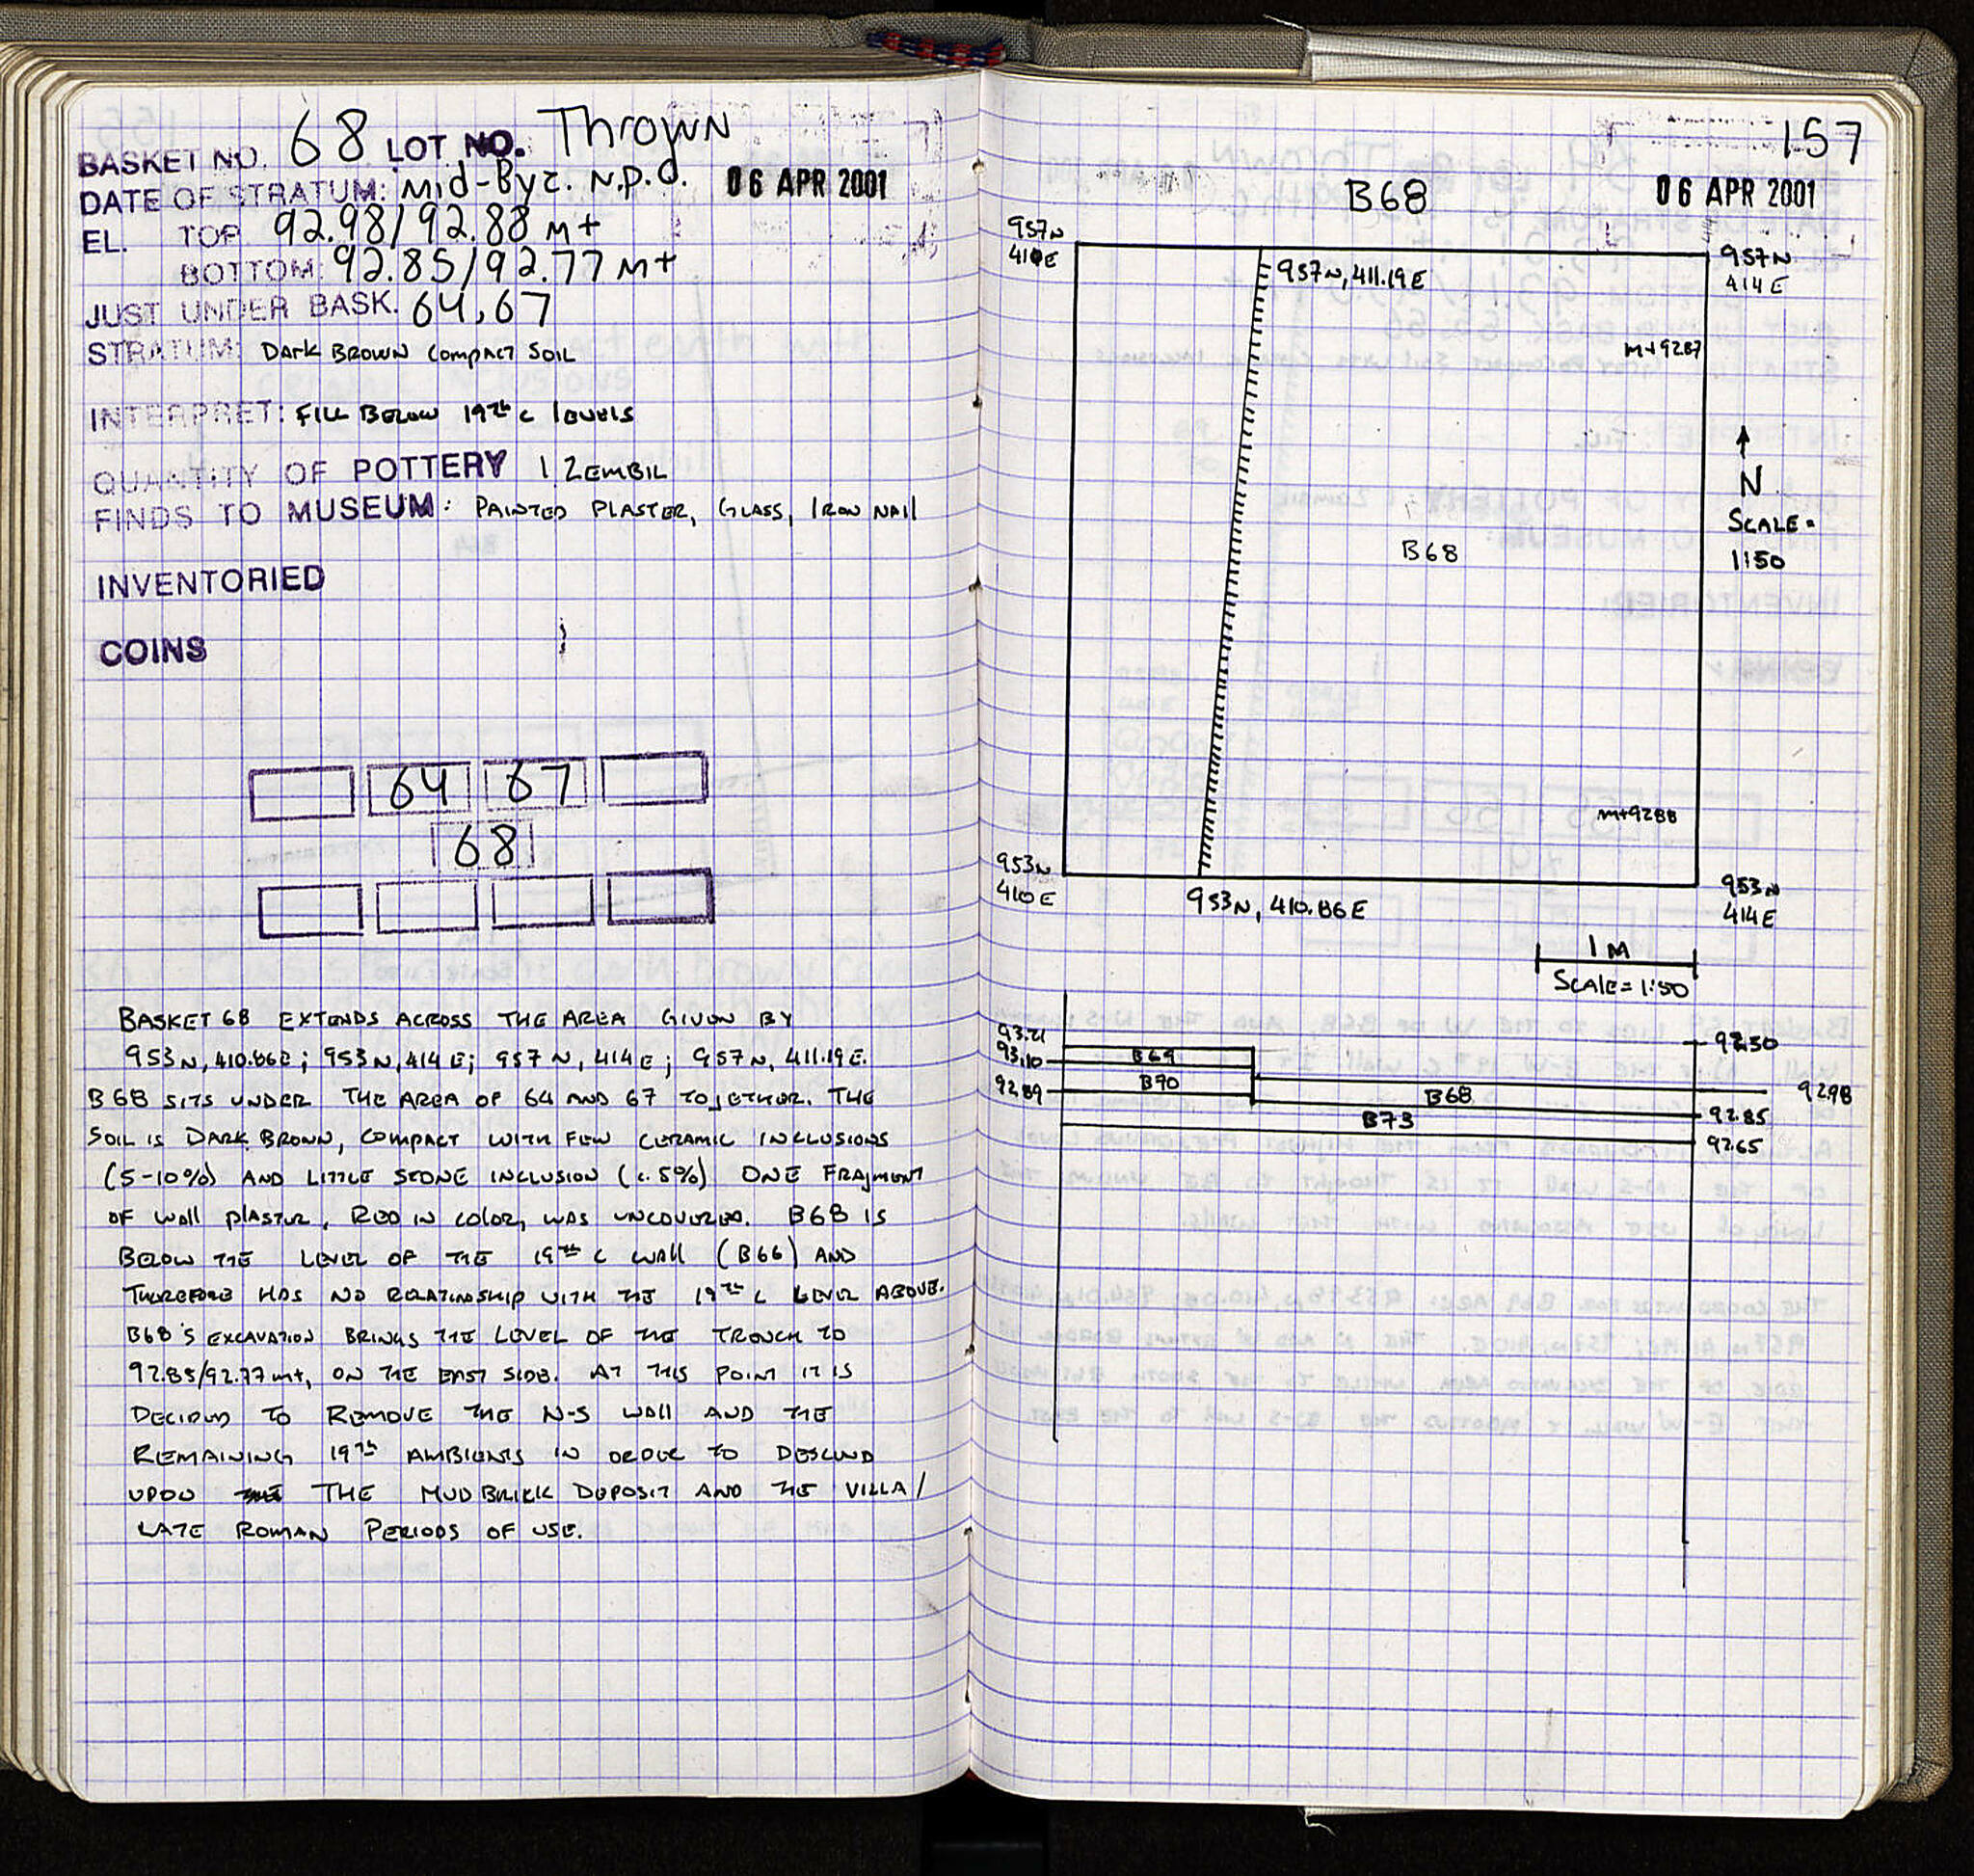 BASKET NO. 68 LOT NO. Thrown
DATE OF STRATUM: Mid-Byz. N.P.D. 06 APR 2001
EL. TOP 92.98/92.88 M+
BOTTOM: 92.85/92.77 M+
JUST UNDER BASK. 64,67
STRATUM: DARK BROWN COMPACT SOIL
INTERPRET: FILL BELOW 19th C LEVELS
QUANTITY OF POTTERY 1 ZEMBIL
FINDS TO MUSEUM: PAINTED PLASTER, GLASS, IRON NAIL
INVENTORIED
COINS
64 67
68
BASKET 68 EXTENDS ACROSS THE AREA GIVEN BY
953N, 410.86E; 953N, 414E; 957N, 414E; 957N, 411.19E.
B68 SITS UNDER THE AREA OF 64 AND 67 TOGETHER. THE
SOIL IS DARK BROWN, COMPACT WITH FEW CERAMIC INCLUSIONS
(5-10%) AND LITTLE STONE INCLUSION (c. 5%) ONE FRAGMENT
OF WALL PLASTER, RED IN COLOR, WAS UNCOVERED. B68 IS
BELOW THE LEVEL OF THE 19th C WALL (B66) AND
THEREFORE HAS NO RELATIONSHIP WITH THE 19th C LEVEL ABOVE.
B68'S EXCAVATION BRINGS THE LEVEL OF THE TRENCH TO
92.85/92.77 M+, ON THE EAST SIDE. AT THIS POINT IT IS
DECIDED TO REMOVE THE N-S WALL AND THE
REMAINING 19th AMBIENTS IN ORDER TO DESCEND
UPON THE MUDBRICK DEPOSIT AND THE VILLA/
LATE ROMAN PERIODS OF USE.
157
B68 06 APR 2001
957N
410E
957N, 411.19E
957N
414E
M+9287
N
SCALE =
1:50
B68
M+9288
953N
410E
953N, 410.86E
953N
414E
1 M
SCALE = 1:50
93.21
93.10
92.89
B69
B70
B68
B73
92.50
92.98
92.85
92.65